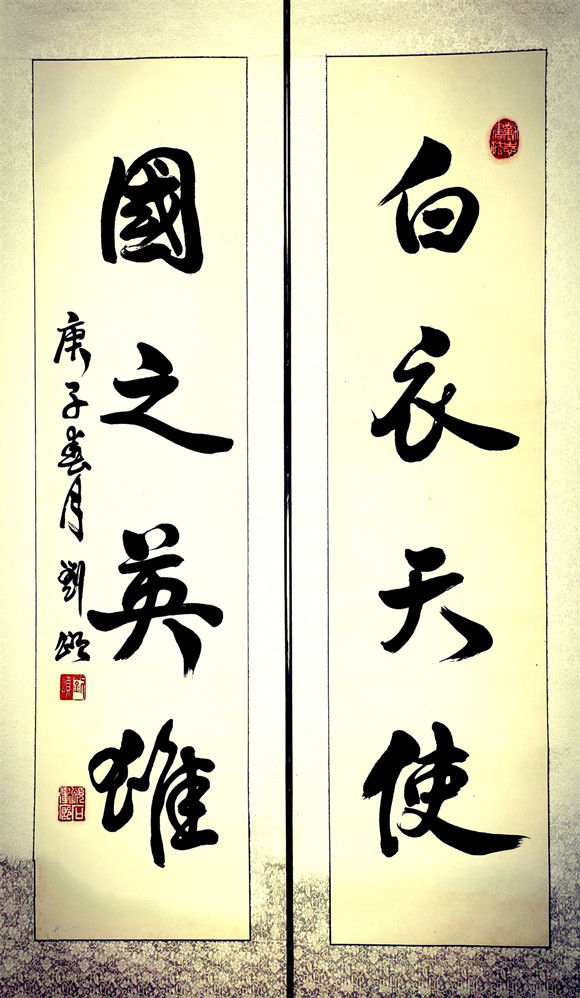 白衣天使
國之英雄
庚子春月劉